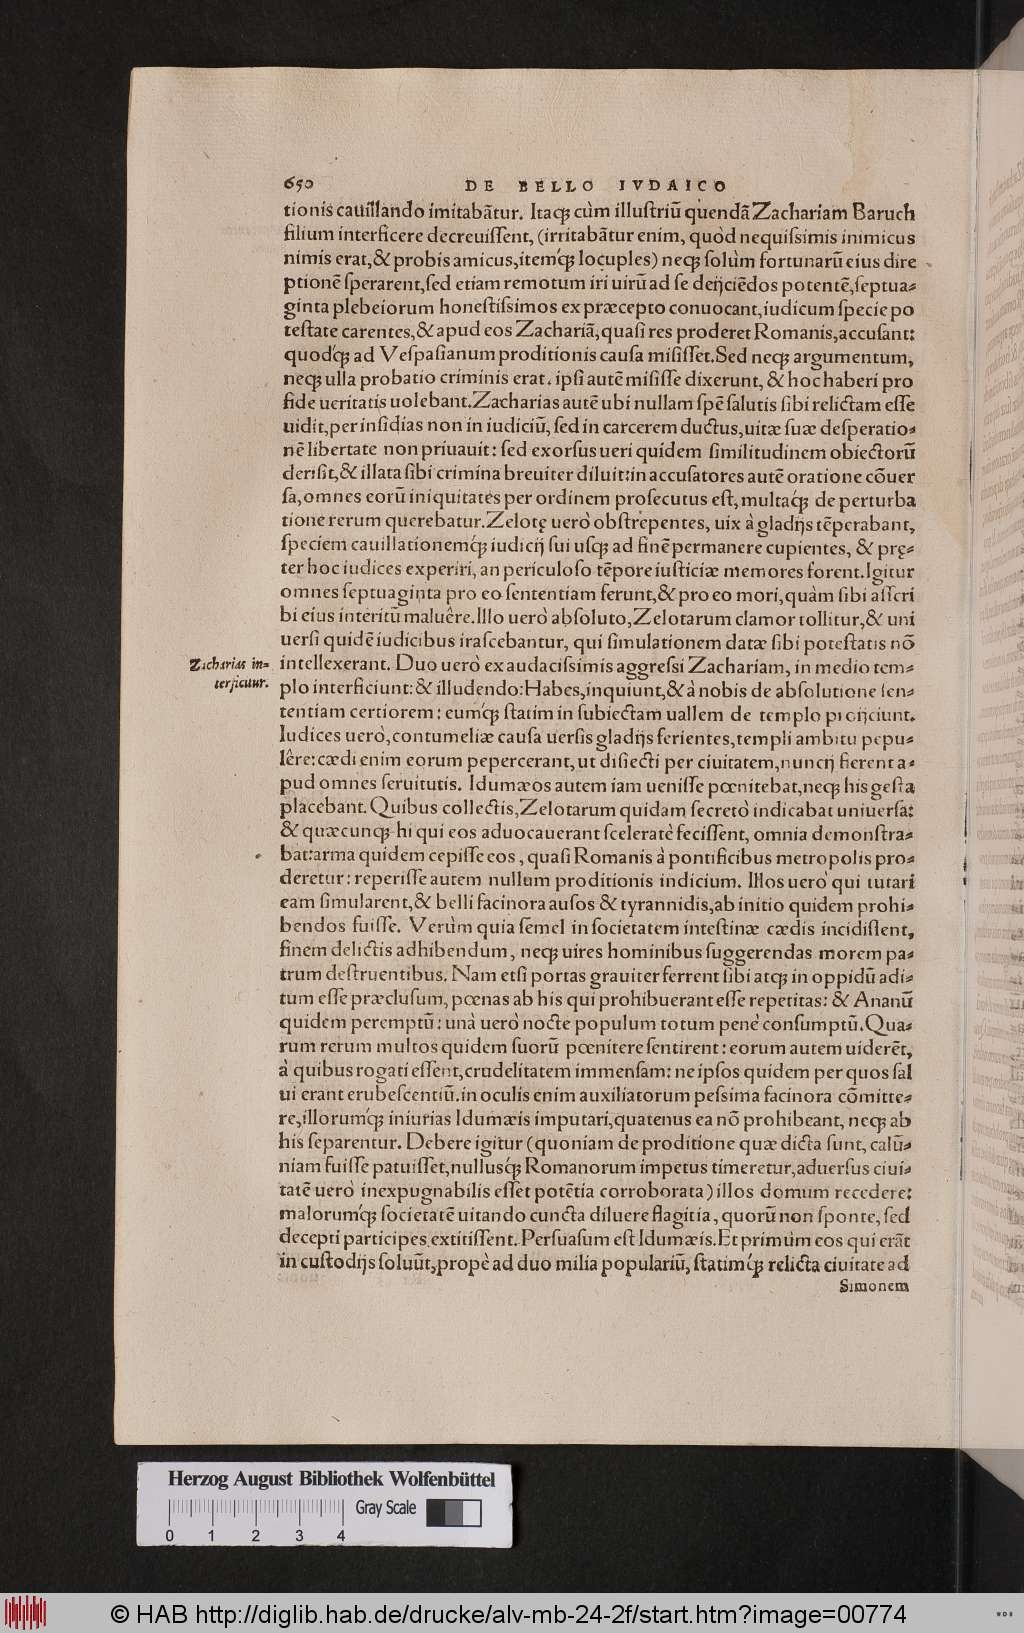 650 DE BELLO IVDAICO
tionis cauillando imitabãtur. Itaq; cùm illuſtriũ quendã Zachariam Baruch
filium interficere decreuiſſent, (irritabãtur enim, quòd nequiſsimis inimicus
nimis erat, & probis amicus, itemq́; locuples) neq; ſolùm fortunarũ eius dire
ptionẽ ſperarent, ſed etiam remotum iri uirũ ad ſe deijciẽdos potentẽ, ſeptua⸗
ginta plebeiorum honeſtiſsimos ex præcepto conuocant, iudicum ſpecie po
teſtate carentes, & apud eos Zachariã, quaſi res proderet Romanis, accuſant:
quodq́; ad Veſpaſianum proditionis cauſa miſiſſet. Sed neq; argumentum,
neq; ulla probatio criminis erat. ipſi autẽ miſiſſe dixerunt, & hoc haberi pro
fide ueritatis uolebant. Zacharias autẽ ubi nullam ſpẽ ſalutis ſibi relictam eſſe
uidit, per inſidias non in iudiciũ, ſed in carcerem ductus, uitæ ſuæ deſperatio⸗
nẽ libertate non priuauit: ſed exorſus ueri quidem ſimilitudinem obiectorũ
deriſit, & illata ſibi crimina breuiter diluit: in accuſatores autẽ oratione cõuer
ſa, omnes eorũ iniquitates per ordinem proſecutus eſt, multaq́; de perturba
tione rerum querebatur. Zelotę uerò obſtrepentes, uix à gladijs tẽperabant,
ſpeciem cauillationemq́; iudicij ſui uſq; ad finẽ permanere cupientes, & prę⸗
ter hoc iudices experiri, an periculoſo tẽpore iuſticiæ memores forent. Igitur
omnes ſeptuaginta pro eo ſententiam ferunt, & pro eo mori, quàm ſibi aſſcri
bi eius interitũ maluêre. Illo uerò abſoluto, Zelotarum clamor tollitur, & uni
uerſi quidẽ iudicibus iraſcebantur, qui ſimulationem datæ ſibi poteſtatis nõ
Zacharias in⸗
terficitur.
intellexerant. Duo uerò ex audaciſsimis aggreſsi Zachariam, in medio tem⸗
plo interficiunt: & illudendo: Habes, inquiunt, & à nobis de abſolutione ſen⸗
tentiam certiorem: eumq́; ſtatim in ſubiectam uallem de templo proijciunt.
Iudices uerò, contumeliæ cauſa uerſis gladijs ferientes, templi ambitu pepu⸗
lêre: cædi enim eorum pepercerant, ut diſiecti per ciuitatem, nuncij fierent a⸗
pud omnes ſeruitutis. Idumæos autem iam ueniſſe pœnitebat, neq; his geſta
placebant. Quibus collectis, Zelotarum quidam ſecretò indicabat uniuerſa:
& quæcunq; hi qui eos aduocauerant ſceleratè feciſſent, omnia demonſtra⸗
bat: arma quidem cepiſſe eos, quaſi Romanis à pontificibus metropolis pro⸗
deretur: reperiſſe autem nullum proditionis indicium. Illos uerò qui tutari
eam ſimularent, & belli facinora auſos & tyrannidis, ab initio quidem prohi⸗
bendos fuiſſe. Verùm quia ſemel in ſocietatem inteſtinæ cædis incidiſſent,
finem delictis adhibendum, neq; uires hominibus ſuggerendas morem pa⸗
trum deſtruentibus. Nam etſi portas grauiter ferrent ſibi atq; in oppidũ adi⸗
tum eſſe præcluſum, pœnas ab his qui prohibuerant eſſe repetitas: & Ananũ
quidem peremptũ: unà uerò nocte populum totum penè conſumptũ. Qua⸗
rum rerum multos quidem ſuorũ pœnitere ſentirent: eorum autem uiderẽt,
à quibus rogati eſſent, crudelitatem immenſam: ne ipſos quidem per quos ſal
ui erant erubeſcentiũ. in oculis enim auxiliatorum peſsima facinora cõmitte⸗
re, illorumq́; iniurias Idumæis imputari, quatenus ea nõ prohibeant, neq; ab
his ſeparentur. Debere igitur (quoniam de proditione quæ dicta ſunt, calũ⸗
niam fuiſſe patuiſſet, nullusq́; Romanorum impetus timeretur, aduerſus ciui⸗
tatẽ uerò inexpugnabilis eſſet potẽtia corroborata) illos domum recedere:
malorumq́; ſocietatẽ uitando cuncta diluere flagitia, quorũ non ſponte, ſed
decepti participes extitiſſent. Perſuaſum eſt Idumæis. Et primùm eos qui erãt
in cuſtodijs ſoluũt, propè ad duo milia populariũ, ſtatimq́; relicta ciuitate ad
Simonem
Herzog August Bibliothek Wolfenbüttel
Gray Scale
0 1 2 3 4
© HAB http://diglib.hab.de/drucke/alv-mb-24-2f/start.htm?image=00774